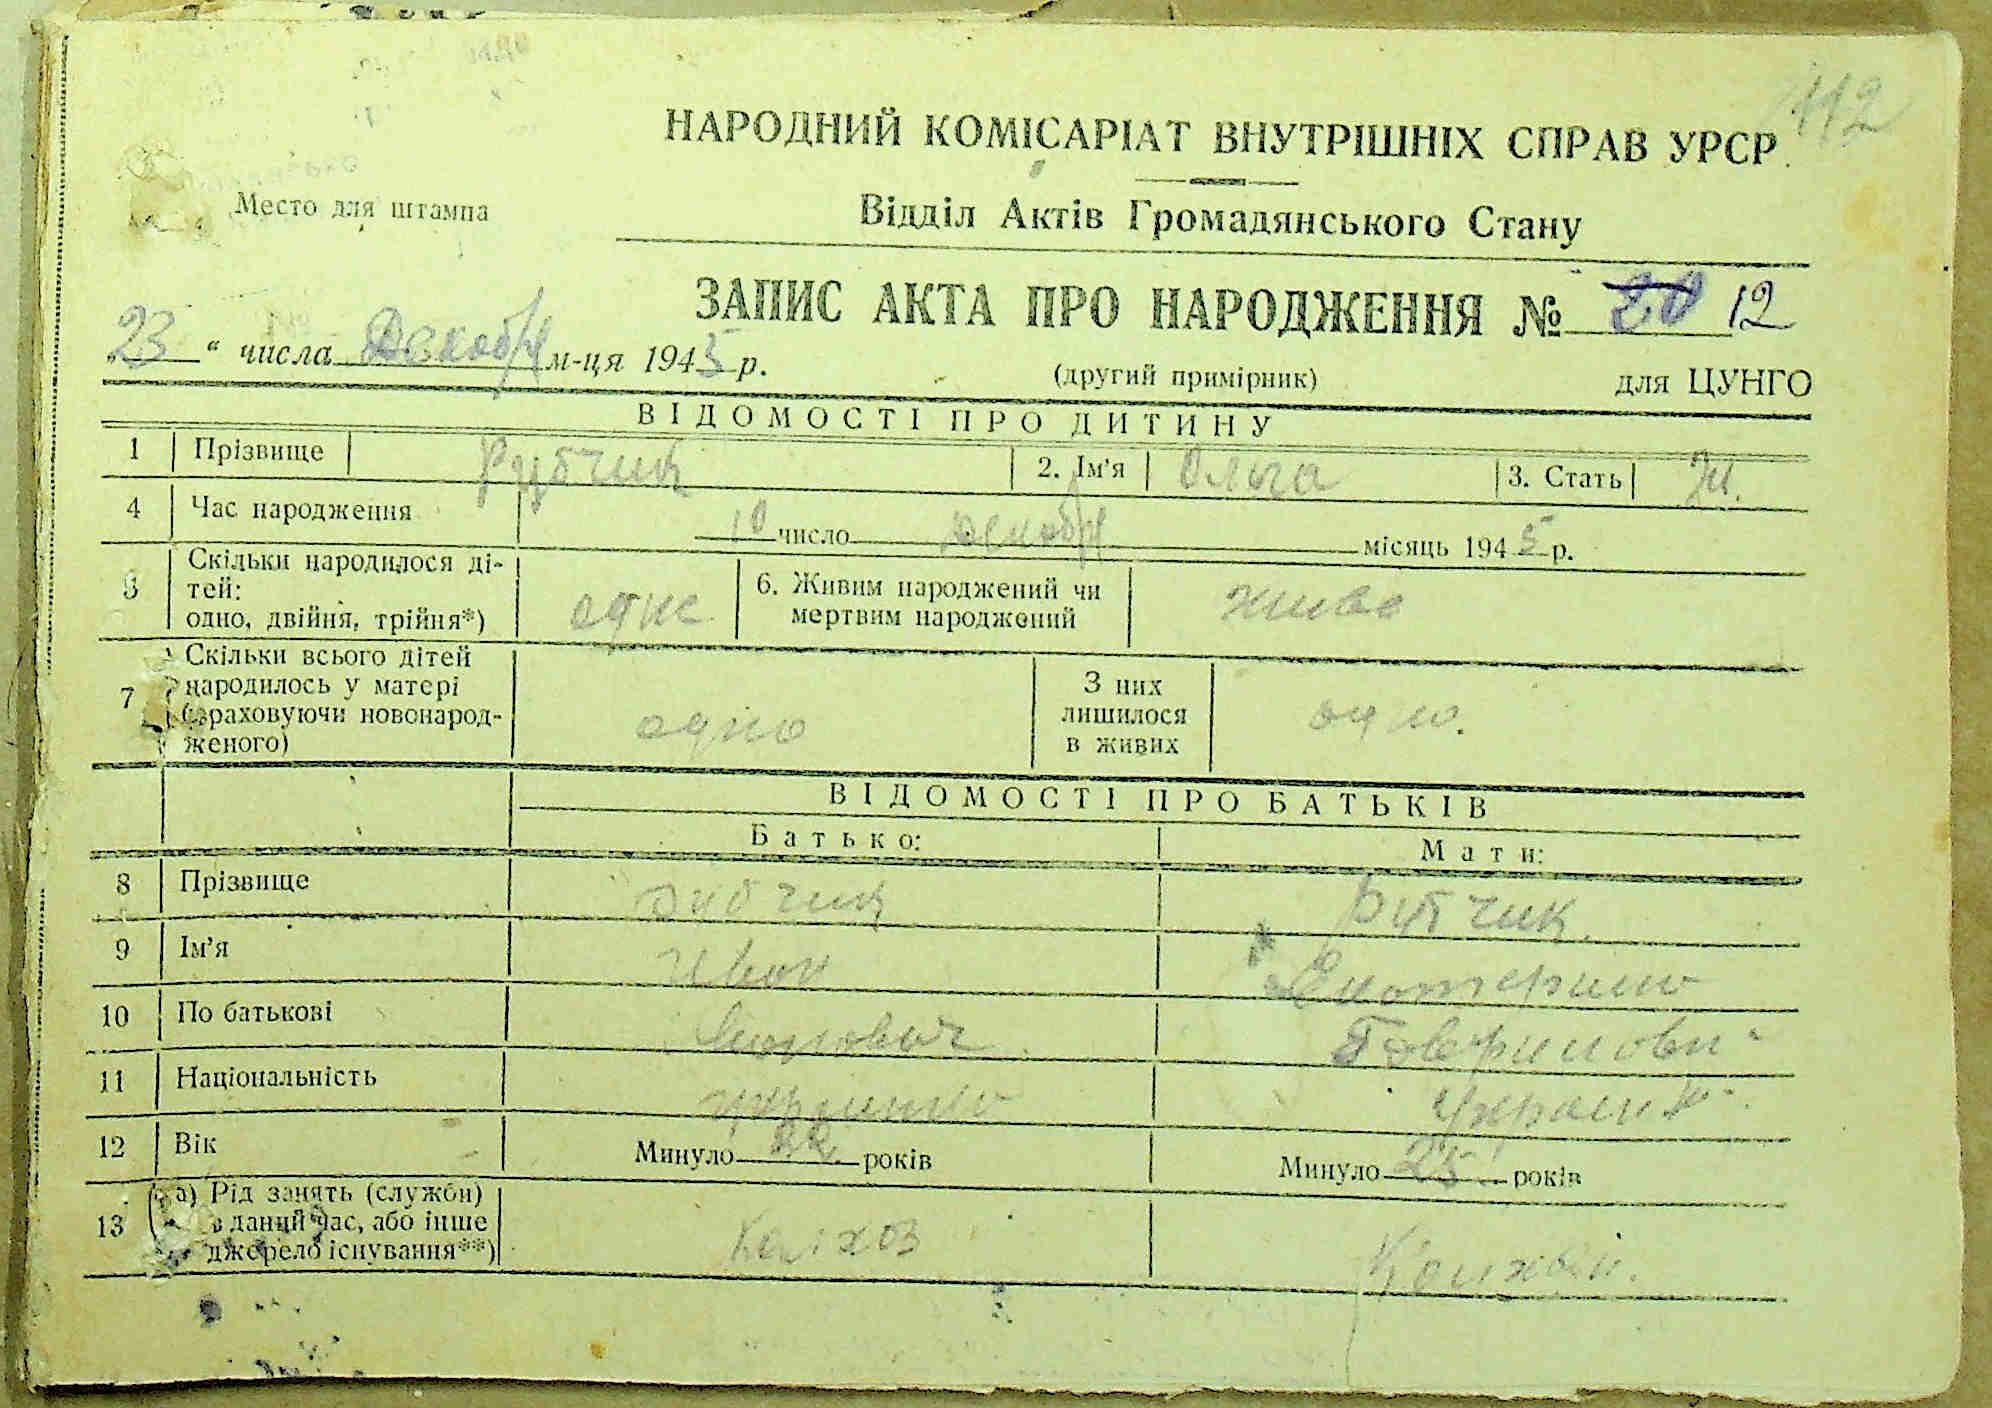 112
НАРОДНИЙ КОМІСАРІАТ ВНУТРІШНІХ СПРАВ УРСР
Место для штампа
Відділ Актів Громадянського Стану
ЗАПИС АКТА ПРО НАРОДЖЕННЯ № 20 12
23 " числа Декабря м-ця 1945 р.
(другий примірник) для ЦУНГО
ВІДОМОСТІ ПРО ДИТИНУ
1 Прізвище Рубчик 2. Ім'я Ольга 3. Стать Ж.
4 Час народження 10 число Декабря місяць 1945 р.
5 Скільки народилося ді-
тей:
одно, двійня, трійня*) одне 6. Живим народжений чи
мертвим народжений живе
7 Скільки всього дітей
народилось у матері
(враховуючи новонарод-
женого) одно
З них
лишилося
в живих одно.
ВІДОМОСТІ ПРО БАТЬКІВ
Батько: Мати:
8 Прізвище Рубчик Рубчик
9 Ім'я Иван Екатерина
10 По батькові
11 Національність
12 Вік Минуло 22 років Минуло 25 років
13 а) Рід занять (служби)
в даний час, або інше
джерело існування**) Колхоз